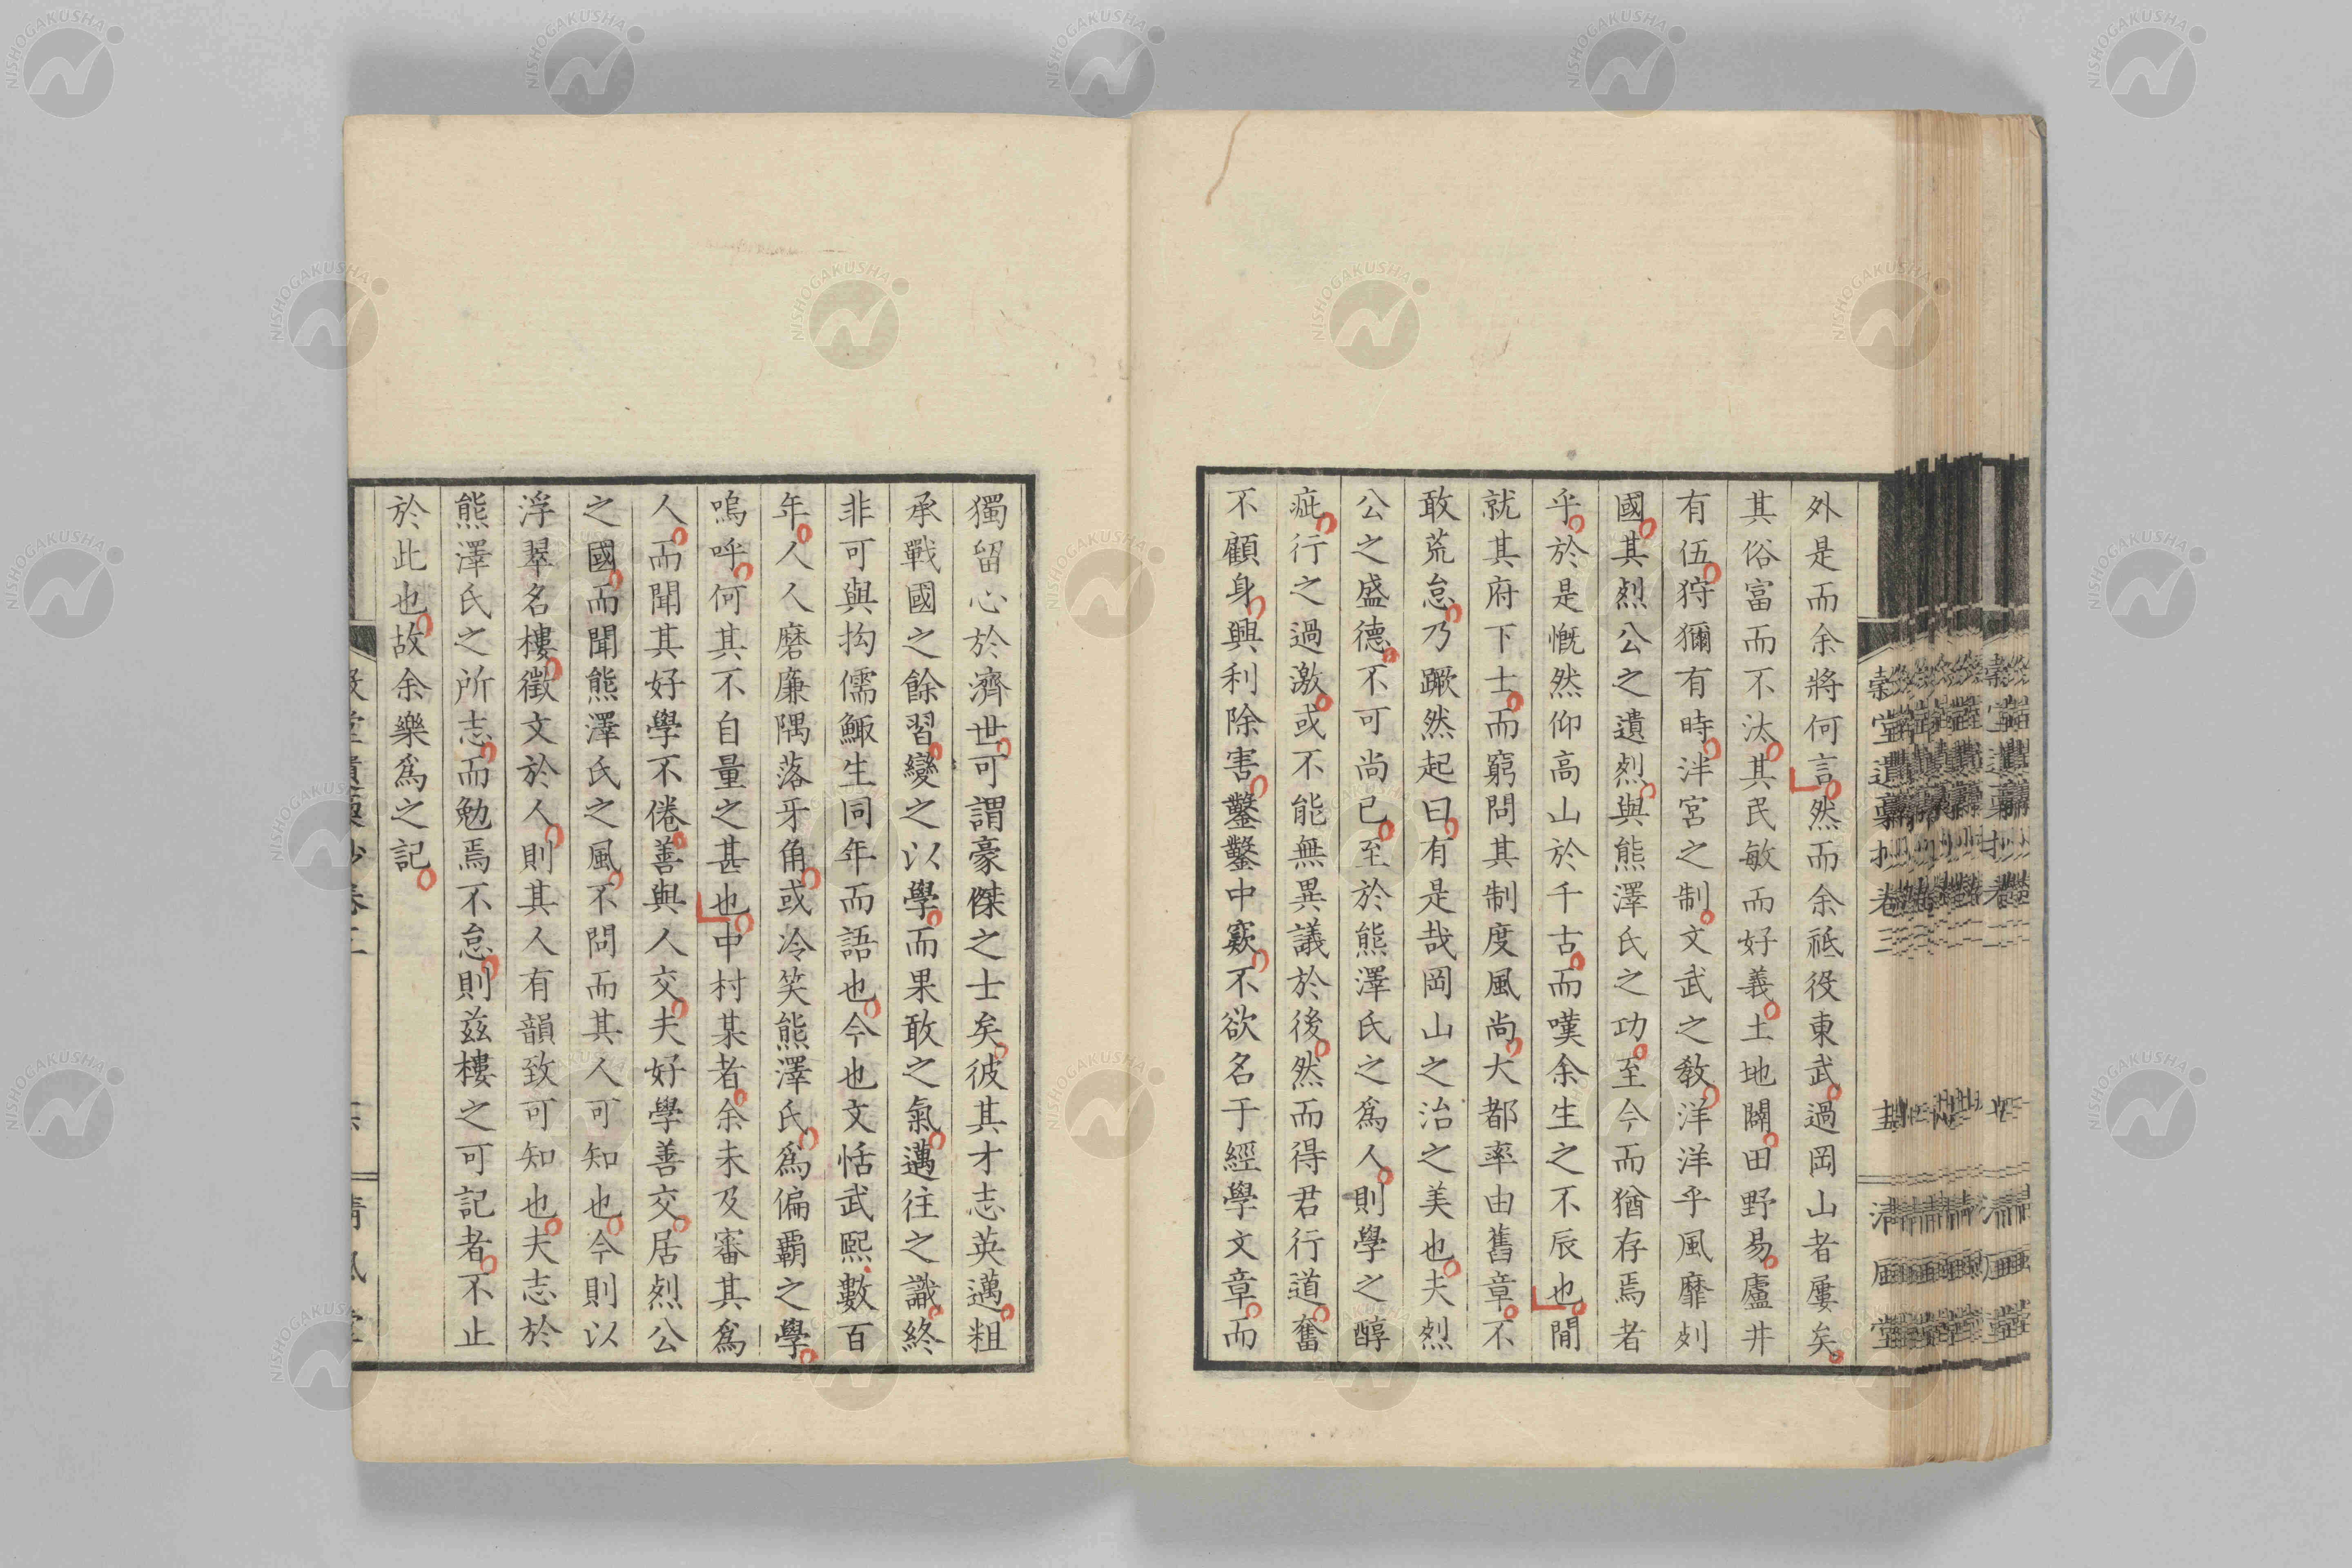 外是而余將何言然而余祗役東武過岡山者屢矣
其俗富而不汰其民敏而好義土地闢田野易廬井
有伍狩獮有時泮宮之制文武之教洋洋乎風靡列
國其烈公之遺烈與熊澤氏之功至今而猶存焉者
乎於是慨然仰高山於千古而嘆余生之不辰也間
就其府下士而窮問其制度風尚大都率由舊章不
敢荒怠乃蹶然起曰有是哉岡山之治之美也夫烈
公之盛德不可尚已至於熊澤氏之爲人則學之醇
疵行之過激或不能無異議於後然而得君行道奮
不顧身興利除害鑿鑿中窾不欲名于經學文章而
獨留心於濟世可謂豪傑之士矣彼其才志英邁粗
承戰國之餘習變之以學而果敢之氣邁往之識終
非可與拘儒鯫生同年而語也今也文恬武熙數百
年人人磨廉隅落牙角或冷笑熊澤氏爲偏霸之學
嗚呼何其不自量之甚也中村某者余未及審其爲
人而聞其好學不倦善與人交夫好學善交居烈公
之國而聞熊澤氏之風不問而其人可知也今則以
浮翠名樓徵文於人則其人有韻致可知也夫志於
熊澤氏之所志而勉焉不怠則茲樓之可記者不止
於此也故余樂爲之記
NISHOGAKUSHA